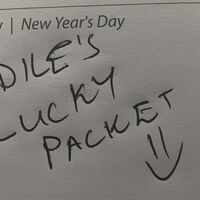 | New Year's Day
DILE'S
LUCKY
PACKET